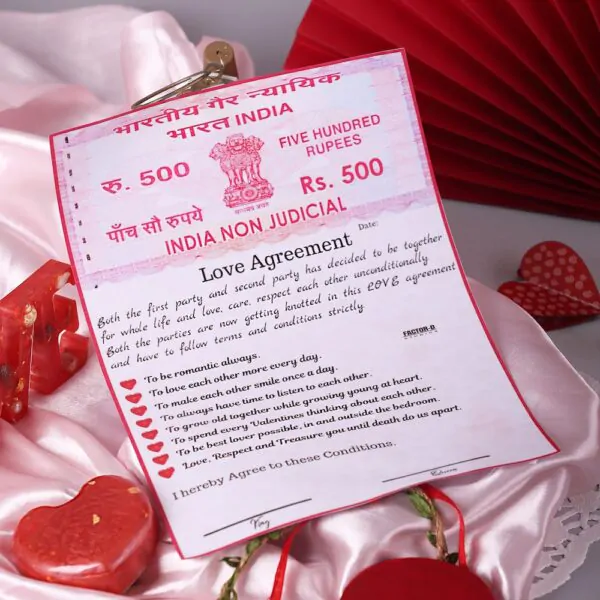 भारतीय गैर न्यायिक
भारत INDIA
रु. 500
FIVE HUNDRED
RUPEES
पाँच सौ रुपये
Rs. 500
सत्यमेव जयते
INDIA NON JUDICIAL
Love Agreement
Date:
Both the first party and second party has decided to be together
for whole life and love, care, respect each other unconditionally
Both the parties are now getting knotted in this LOVE agreement
and have to follow terms and conditions strictly
FACTOR-D
To be romantic always.
To love each other more every day.
To make each other smile once a day.
To always have time to listen to each other.
To grow old together while growing young at heart.
To spend every Valentines thinking about each other.
To be best lover possible, in and outside the bedroom.
Love, Respect and Treasure you until death do us apart.
I hereby Agree to these Conditions.